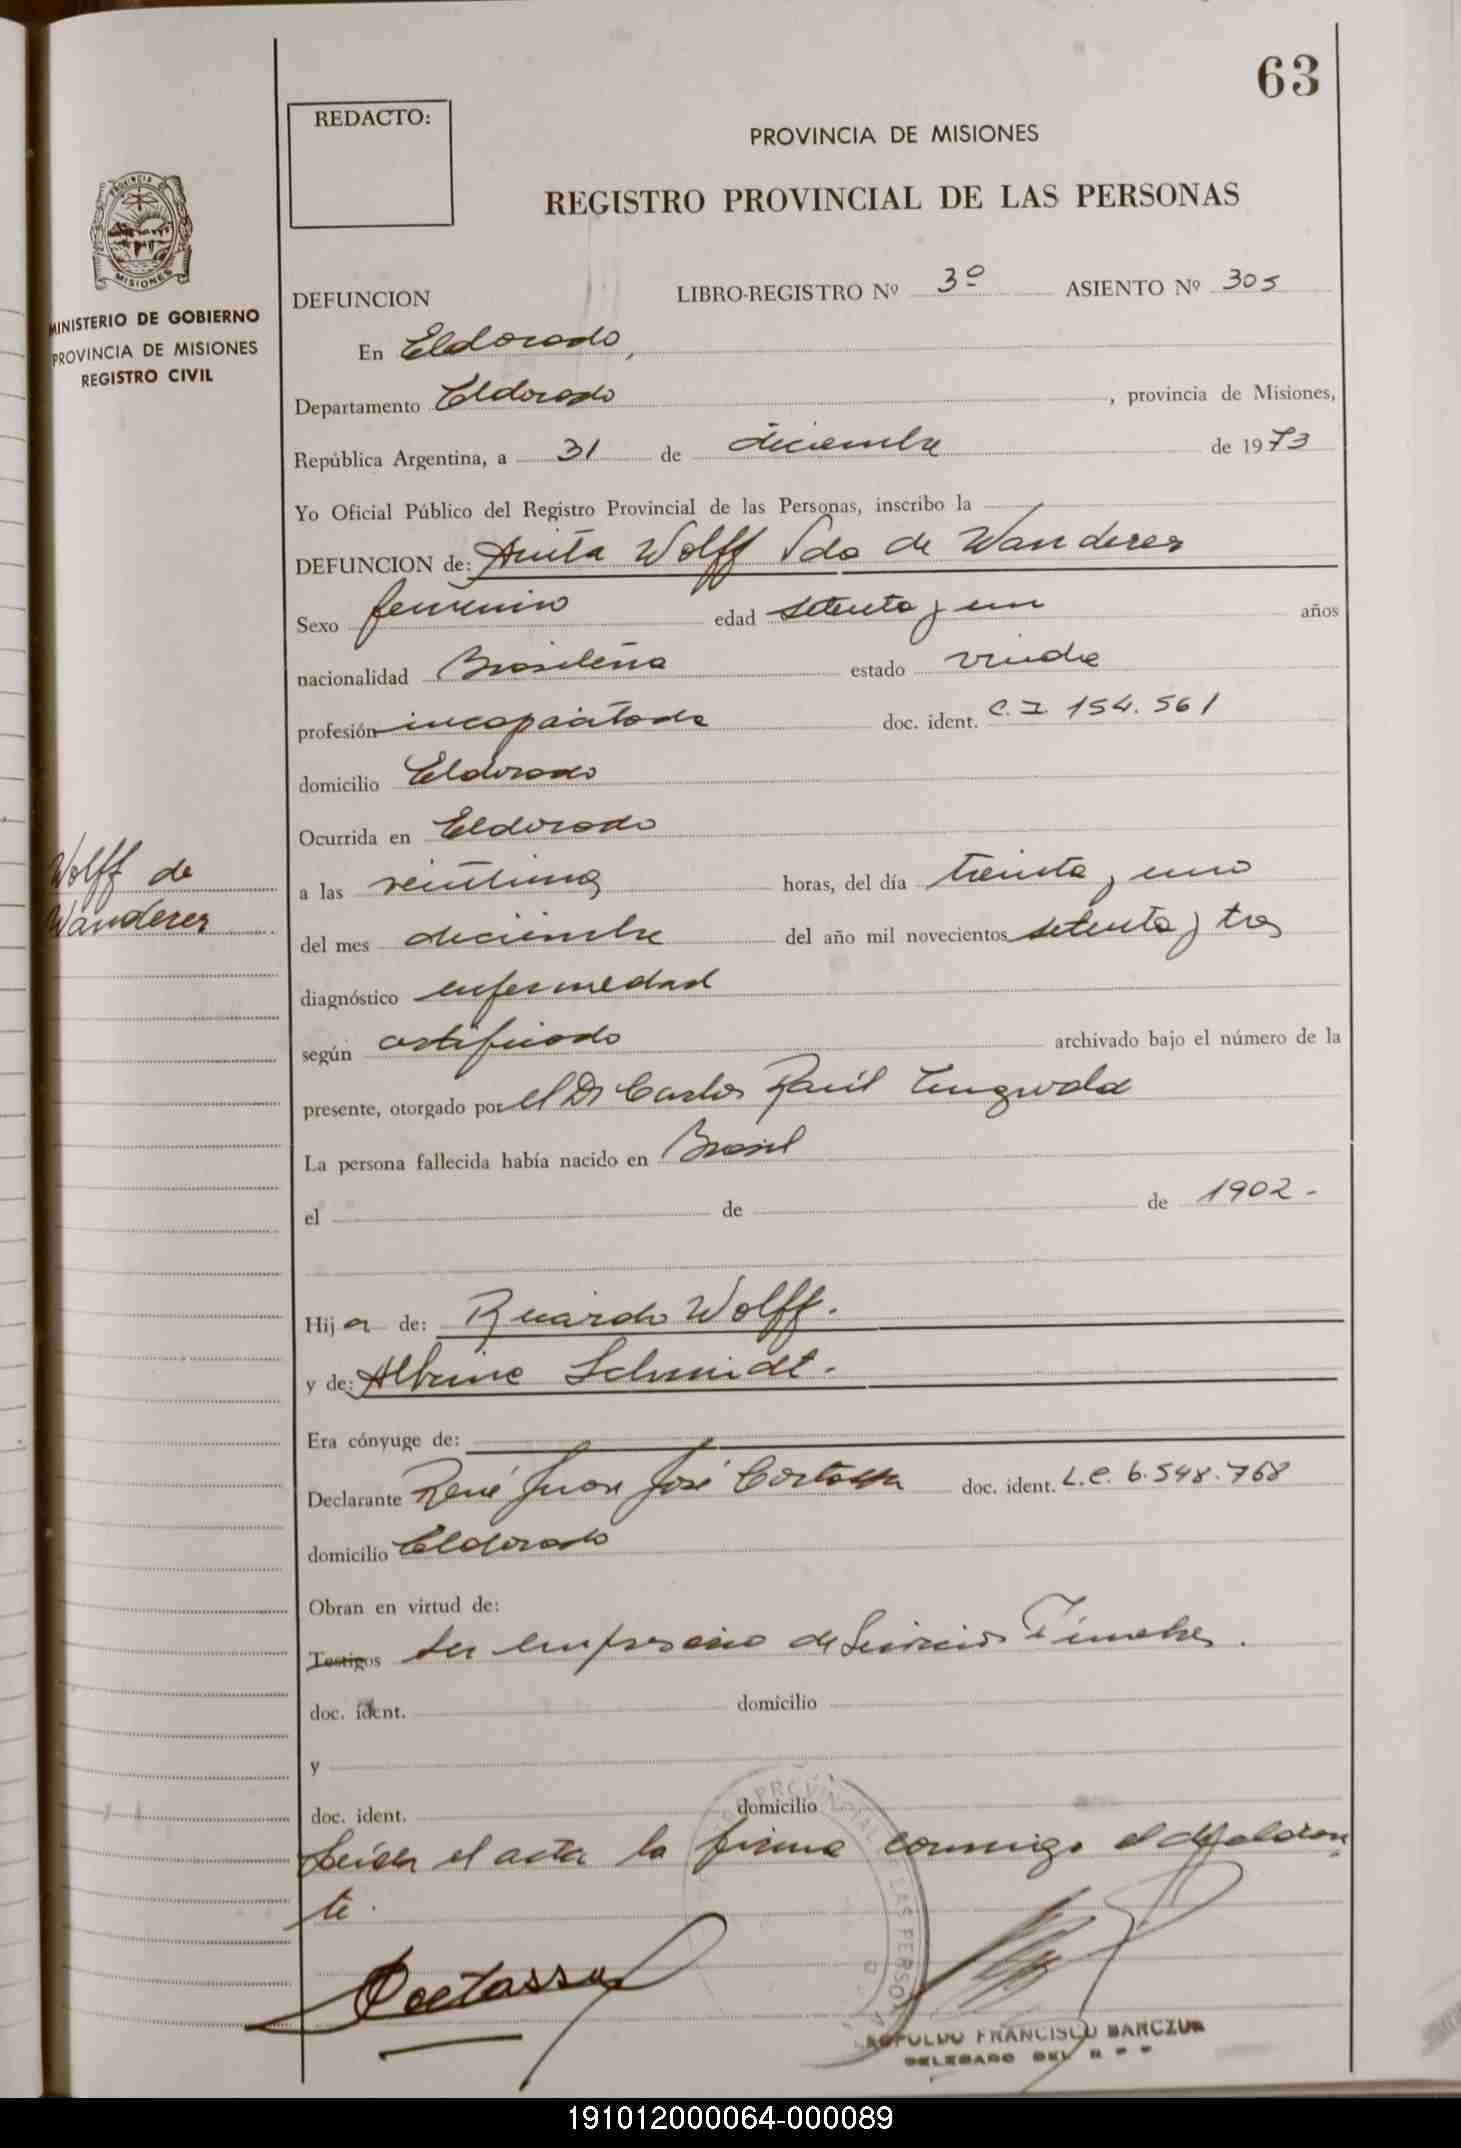 63
REDACTO:
PROVINCIA DE MISIONES
REGISTRO PROVINCIAL DE LAS PERSONAS
PROVINCIA DE
MISIONES
MINISTERIO DE GOBIERNO
PROVINCIA DE MISIONES
REGISTRO CIVIL
DEFUNCION LIBRO-REGISTRO Nº 3º ASIENTO Nº 305
En Eldorado,
Departamento Eldorado , provincia de Misiones,
República Argentina, a 31 de diciembre de 1973
Yo Oficial Público del Registro Provincial de las Personas, inscribo la
DEFUNCION de: Anita Wolff Vda de Wanderer
Sexo femenino edad setenta y un años
nacionalidad Brasileña estado viuda
profesión incapacitada doc. ident. C.I. 154.561
domicilio Eldorado
Ocurrida en Eldorado
Wolff de
Wanderer
a las veintiuna horas, del día treinta y uno
del mes diciembre del año mil novecientos setenta y tres
diagnóstico enfermedad
según certificado archivado bajo el número de la
presente, otorgado por el Dr Carlos Raúl
La persona fallecida había nacido en Brasil
el de de 1902.-
Hija de: Ricardo Wolff.
y de: Albine Schmidt.
Era cónyuge de:
Declarante René Juan José Cortassa doc. ident. L.E. 6.548.768
domicilio Eldorado
Obran en virtud de:
Testigos ser empresario de Servicios Fúnebres.
doc. ident. domicilio
y
doc. ident. domicilio
Leída el acta la firma conmigo el declaran
te.
Cortassa
PROVINCIAL DE LAS PERSO
LEOPOLDO FRANCISCO BARCZUK
DELEGADO DEL R P P
191012000064-000089